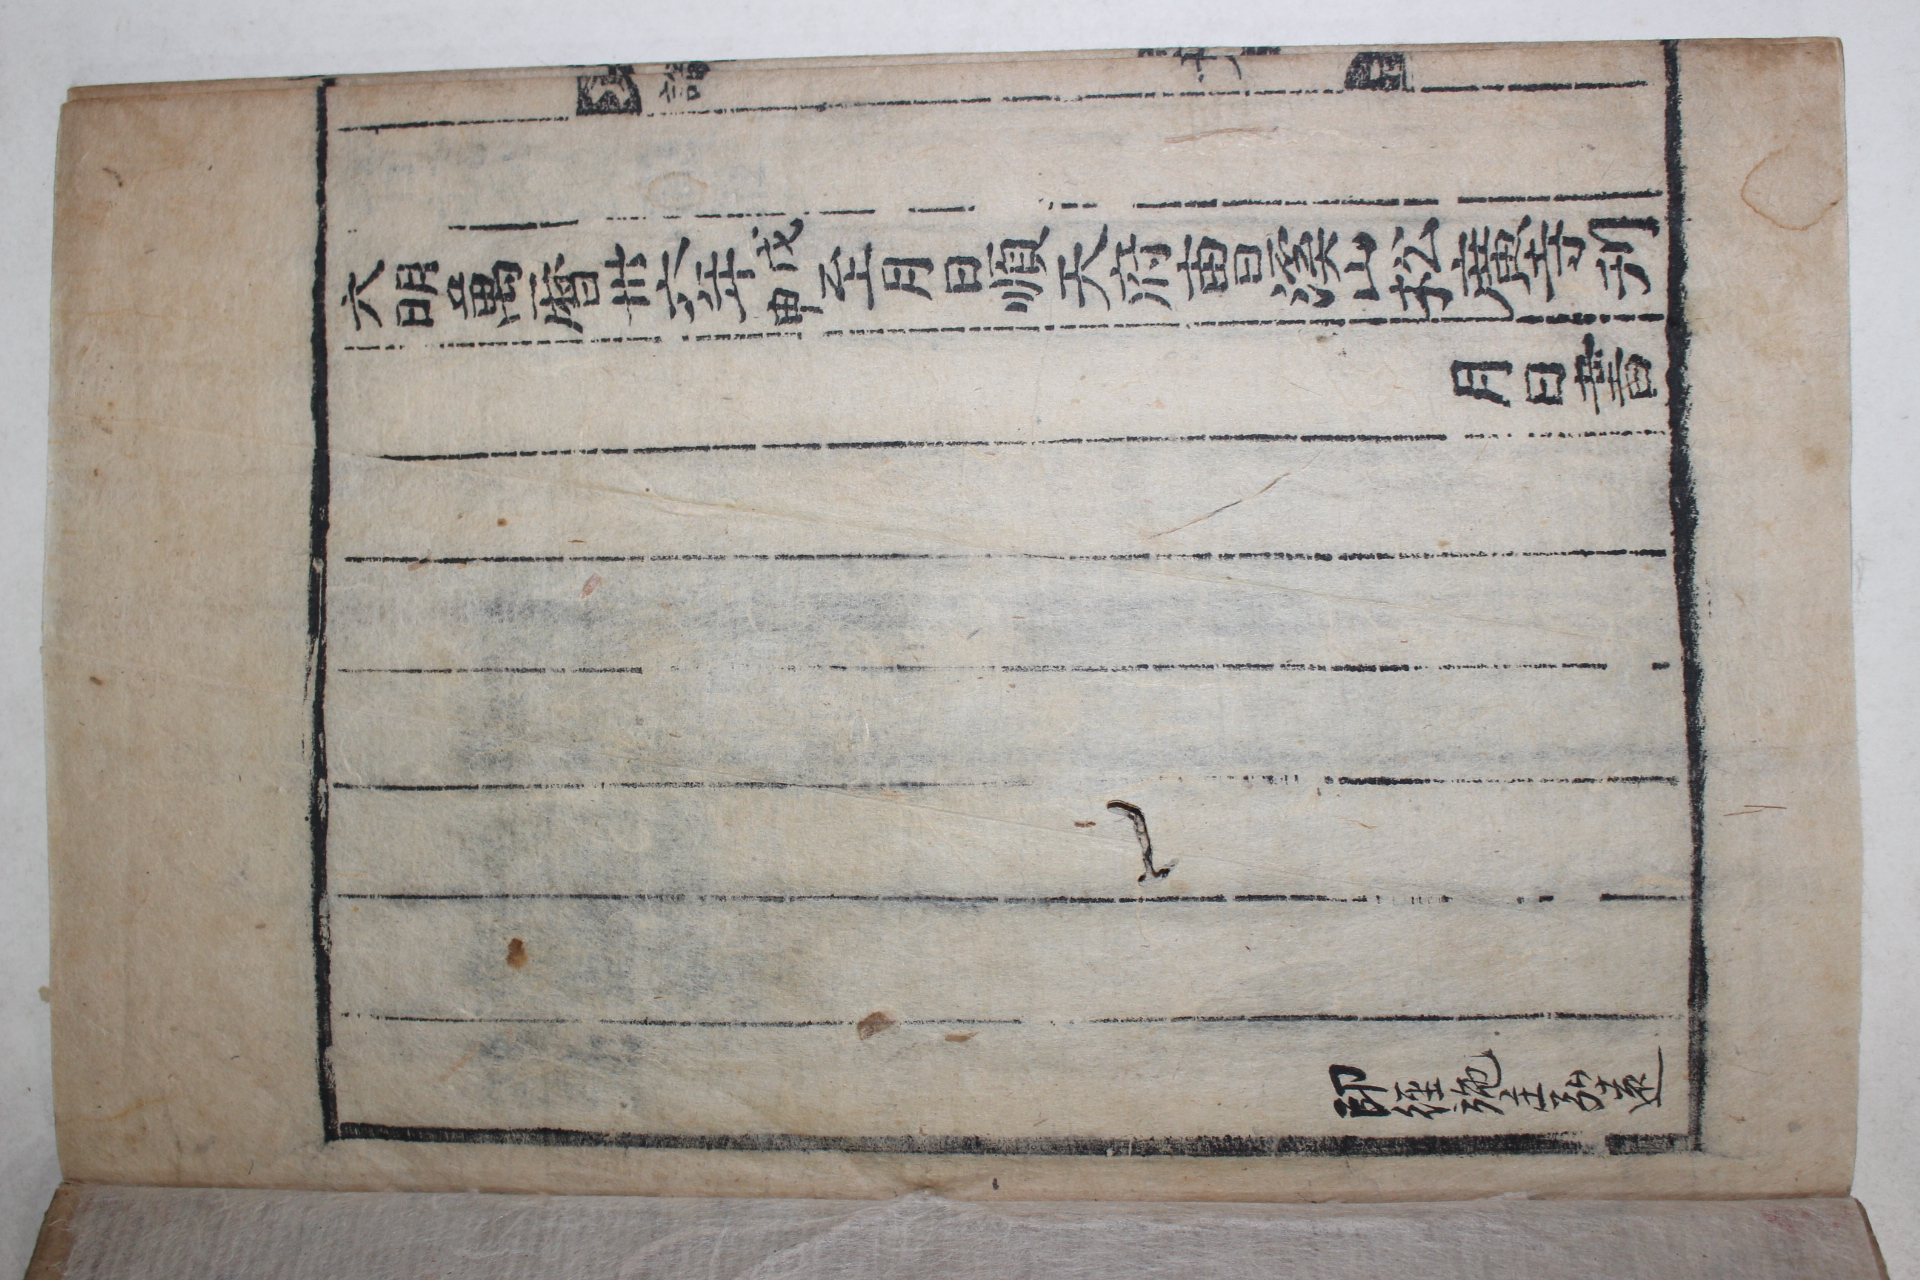 大明萬曆卅六年戊申至月日順天府曺溪山松廣寺刊
月日
印經施主弘